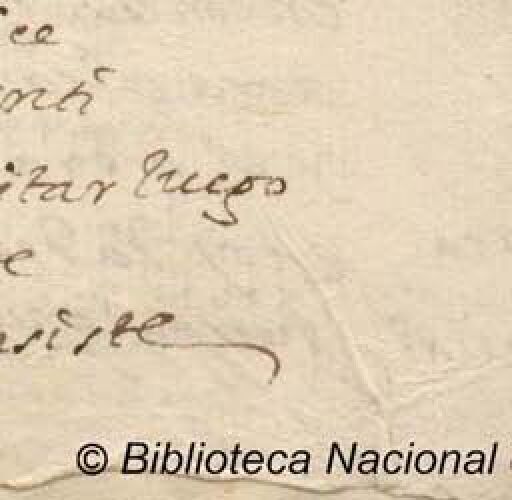 ice
nti
itar luego
e
nsiste
© Biblioteca Nacional